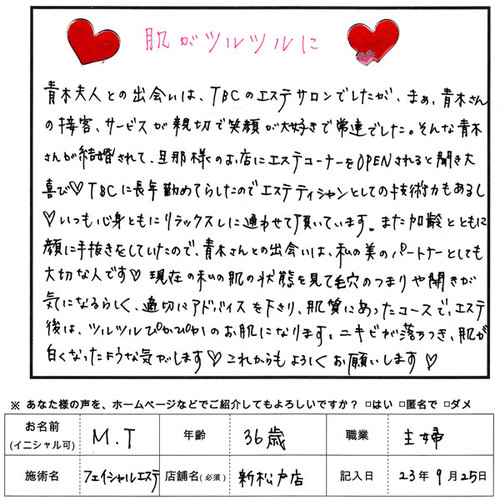 肌がツルツルに
青木夫人との出会いは、TBCのエステサロンでしたが、まぁ、青木さん
の接客、サービスが親切で笑顔が大好きで常連でした。そんな青木
さんが結婚されて、旦那様のお店にエステコーナーをOPENされると聞き大
喜び♡TBCに長年勤めてらしたのでエステティシャンとしての技術力もあるし
♡いつも心身ともにリラックスしに通わせて頂いています。また加齢とともに
顔に手抜きをしていたので、青木さんとの出会いは、私の美のパートナーとしても
大切な人です♡現在の私の肌の状態を見て毛穴のつまりや開きが
気になるらしく、適切にアドバイスを下さり、肌質にあったコースで、エステ
後は、ツルツルぴかぴかのお肌になります。ニキビが落ちつき、肌が
白くなったような気がします♡これからもよろしくお願いします♡
※ あなた様の声を、ホームページなどでご紹介してもよろしいですか？ □はい □匿名で □ダメ
お名前 (イニシャル可) M.T 年齢 36歳 職業 主婦
施術名 フェイシャルエステ 店舗名(必須) 新松戸店 記入日 23年9月25日